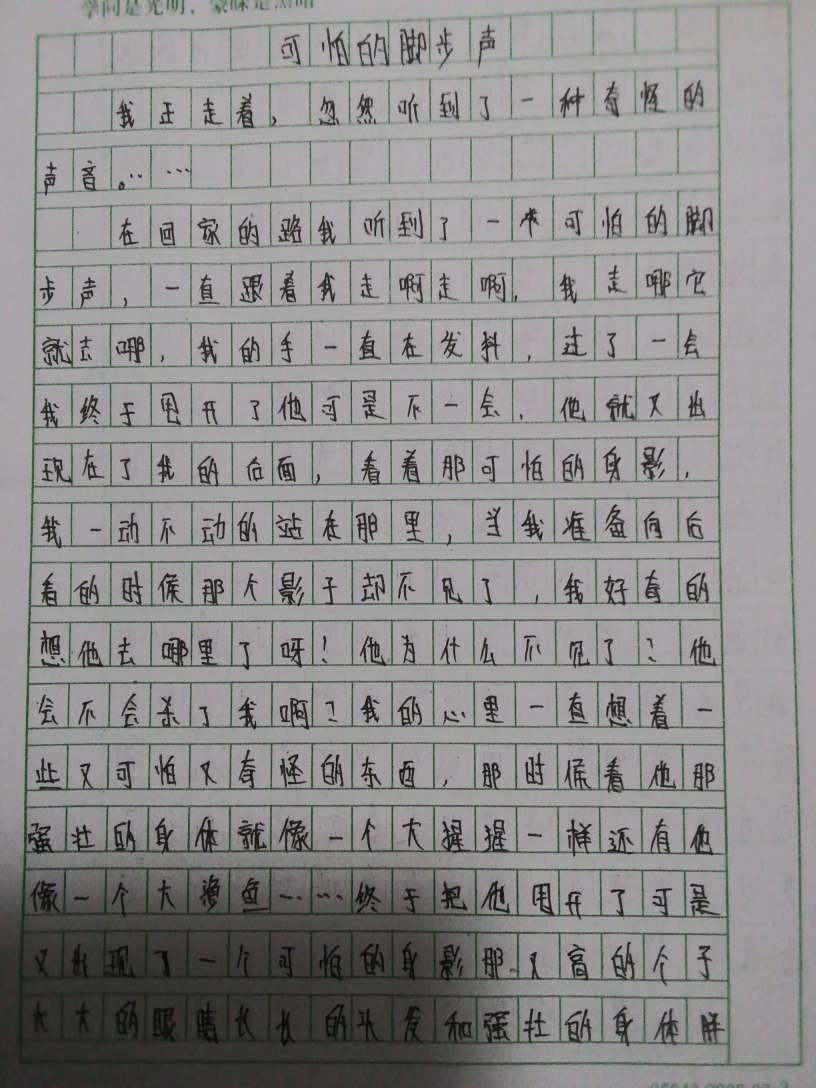 学问是光明，蒙昧是黑暗
可怕的脚步声
我正走着，忽然听到了一种奇怪的
声音。……
在回家的路我听到了一个可怕的脚
步声，一直跟着我走啊走啊，我走哪它
就去哪，我的手一直在发抖，过了一会
我终于甩开了他可是不一会，他就又出
现在了我的后面，看着那可怕的身影，
我一动不动的站在那里，当我准备向后
看的时候那个影子却不见了，我好奇的
想他去哪里了呀！他为什么不见了？他
会不会杀了我啊？我的心里一直想着一
些又可怕又奇怪的东西，那时候看他那
强壮的身体就像一个大猩猩一样还有他
像一个大鲨鱼……终于把他甩开了可是
又出现了一个可怕的身影那、又高的个子
大大的眼睛长长的头发和强壮的身体胖